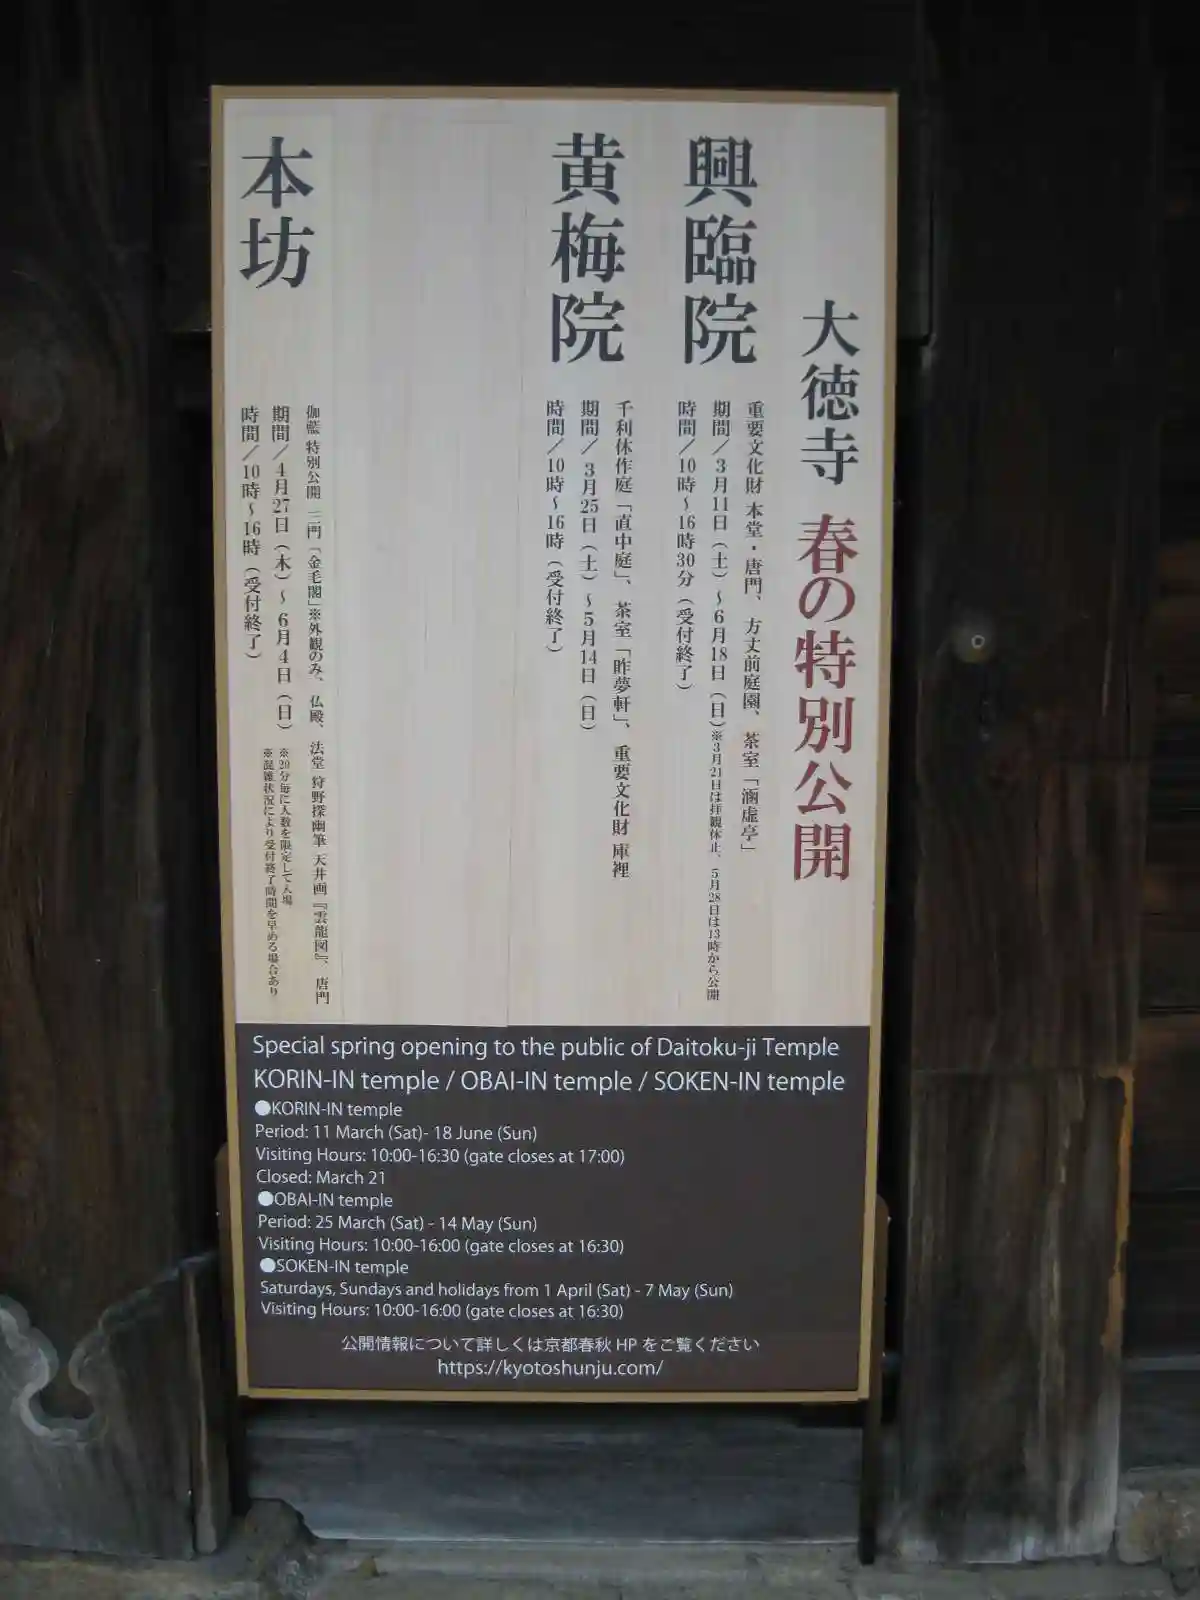 大徳寺 春の特別公開
興臨院
重要文化財 本堂・唐門、方丈前庭園、茶室「涵虚亭」
期間／3月11日（土）～6月18日（日）※3月21日は拝観休止、5月28日は13時から公開
時間／10時～16時30分（受付終了）
黄梅院
千利休作庭「直中庭」、茶室「昨夢軒」、重要文化財 庫裡
期間／3月25日（土）～5月14日（日）
時間／10時～16時（受付終了）
本坊
伽藍 特別公開 三門「金毛閣」※外観のみ、仏殿、法堂 狩野探幽筆 天井画『雲龍図』、唐門
期間／4月27日（木）～6月4日（日）
※20分毎に人数を限定して入場
※混雑状況により受付終了時間を早める場合あり
時間／10時～16時（受付終了）
Special spring opening to the public of Daitoku-ji Temple
KORIN-IN temple / OBAI-IN temple / SOKEN-IN temple
●KORIN-IN temple
Period: 11 March (Sat)- 18 June (Sun)
Visiting Hours: 10:00-16:30 (gate closes at 17:00)
Closed: March 21
●OBAI-IN temple
Period: 25 March (Sat) - 14 May (Sun)
Visiting Hours: 10:00-16:00 (gate closes at 16:30)
●SOKEN-IN temple
Saturdays, Sundays and holidays from 1 April (Sat) - 7 May (Sun)
Visiting Hours: 10:00-16:00 (gate closes at 16:30)
公開情報について詳しくは京都春秋 HP をご覧ください
https://kyotoshunju.com/